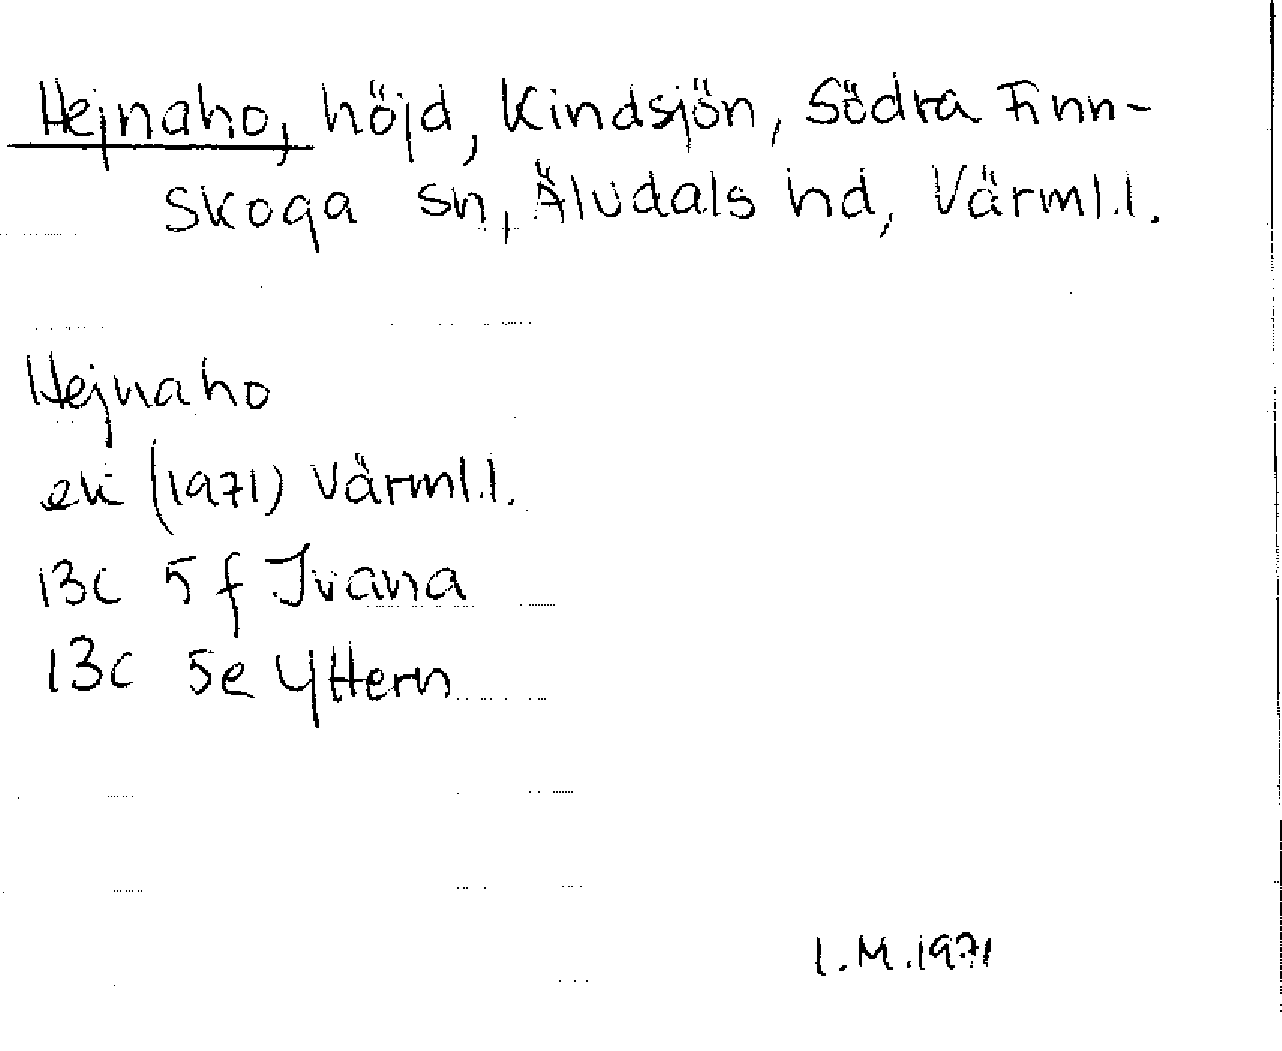 Hejnaho, höjd, Kindsjön, Södra Finn-
Skoga sn, Älvdals hd, Värml.l.
Hejnaho
ek (1971) Värml.l.
13c 5f Ivana
13c 5e Yttern
I.M.1971